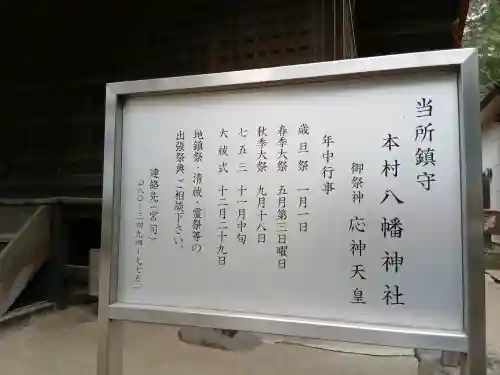 当所鎮守
本村八幡神社
御祭神 応神天皇
年中行事
歳旦祭 一月一日
春季大祭 五月第三日曜日
秋季大祭 九月十八日
七五三 十一月中旬
大祓式 十二月二十九日
地鎮祭 清祓・霊祭等の
出張祭典ご相談下さい。
連絡先(宮司)
〇八〇―三四九四―九七五二